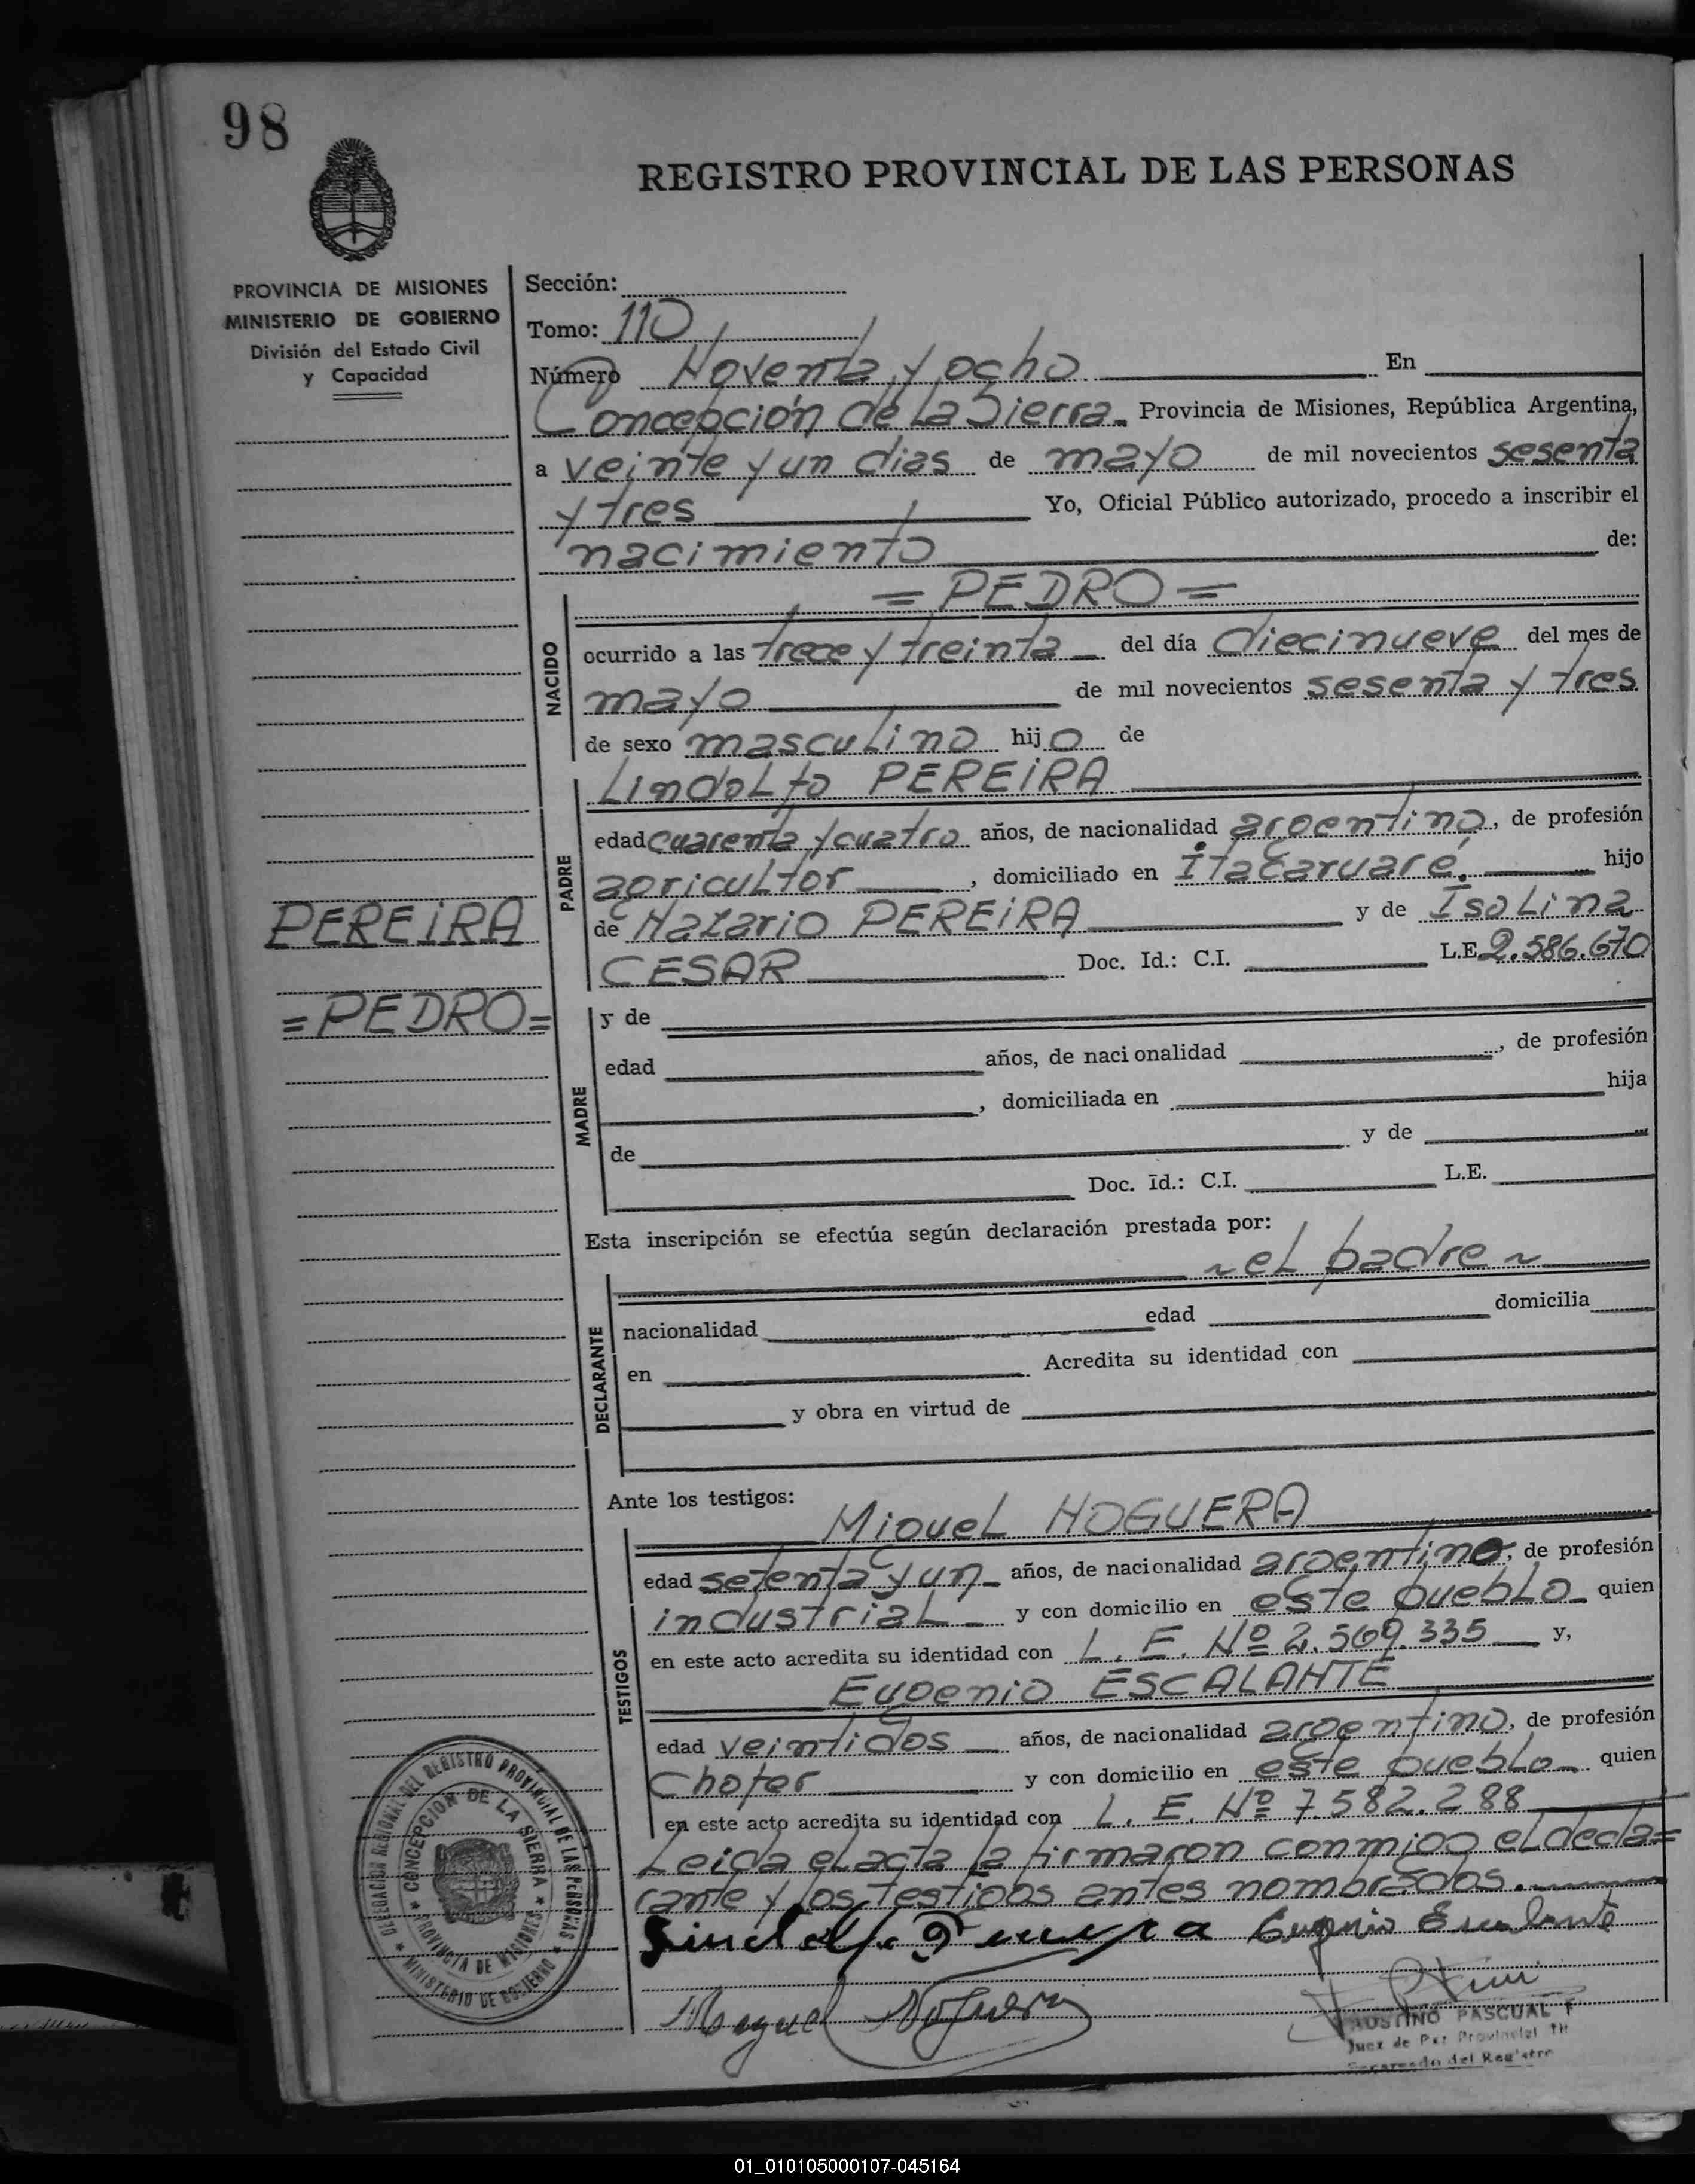 98
REGISTRO PROVINCIAL DE LAS PERSONAS
PROVINCIA DE MISIONES
MINISTERIO DE GOBIERNO
División del Estado Civil
y Capacidad
Sección:
Tomo: 110
Número Noventa y ocho En
Concepción de La Sierra Provincia de Misiones, República Argentina,
a veinte y un dias de mayo de mil novecientos sesenta
y tres Yo, Oficial Público autorizado, procedo a inscribir el
nacimiento de:
= PEDRO =
NACIDO
ocurrido a las trece y treinta del día diecinueve del mes de
mayo de mil novecientos sesenta y tres
de sexo masculino hijo de
Lindolfo PEREIRA
PADRE
edad cuarenta y cuatro años, de nacionalidad argentino, de profesión
agricultor, domiciliado en Itacaruaré. hijo
de Nazario PEREIRA y de Isolina
CESAR Doc. Id.: C.I. L.E. 2.586.670
PEREIRA
= PEDRO =
MADRE
y de
edad años, de nacionalidad , de profesión
, domiciliada en hija
de y de
Doc. Id.: C.I. L.E.
Esta inscripción se efectúa según declaración prestada por:
~ el padre ~
DECLARANTE
nacionalidad edad domicilia
en Acredita su identidad con
y obra en virtud de
Ante los testigos:
Miguel NOGUERA
TESTIGOS
edad setenta y un años, de nacionalidad argentino, de profesión
industrial y con domicilio en este pueblo quien
en este acto acredita su identidad con L. E. Nº 2.569.335 y,
Eugenio ESCALANTE
edad veintidos años, de nacionalidad argentino, de profesión
chofer y con domicilio en este pueblo quien
en este acto acredita su identidad con L. E. Nº 7.582.288
Leida el acta la firmaron conmigo el decla=
rante y los testigos antes nombrados.
Lindolfo Pereyra Eugenio Escalante
Miguel Noguera
FAUSTINO PASCUAL F
Juez de Paz Provincial
Encargado del Registro
DELEGACION REGIONAL DEL REGISTRO PROVINCIAL DE LAS PERSONAS
MINISTERIO DE GOBIERNO
CONCEPCION DE LA SIERRA
PROVINCIA DE MISIONES
01_010105000107-045164